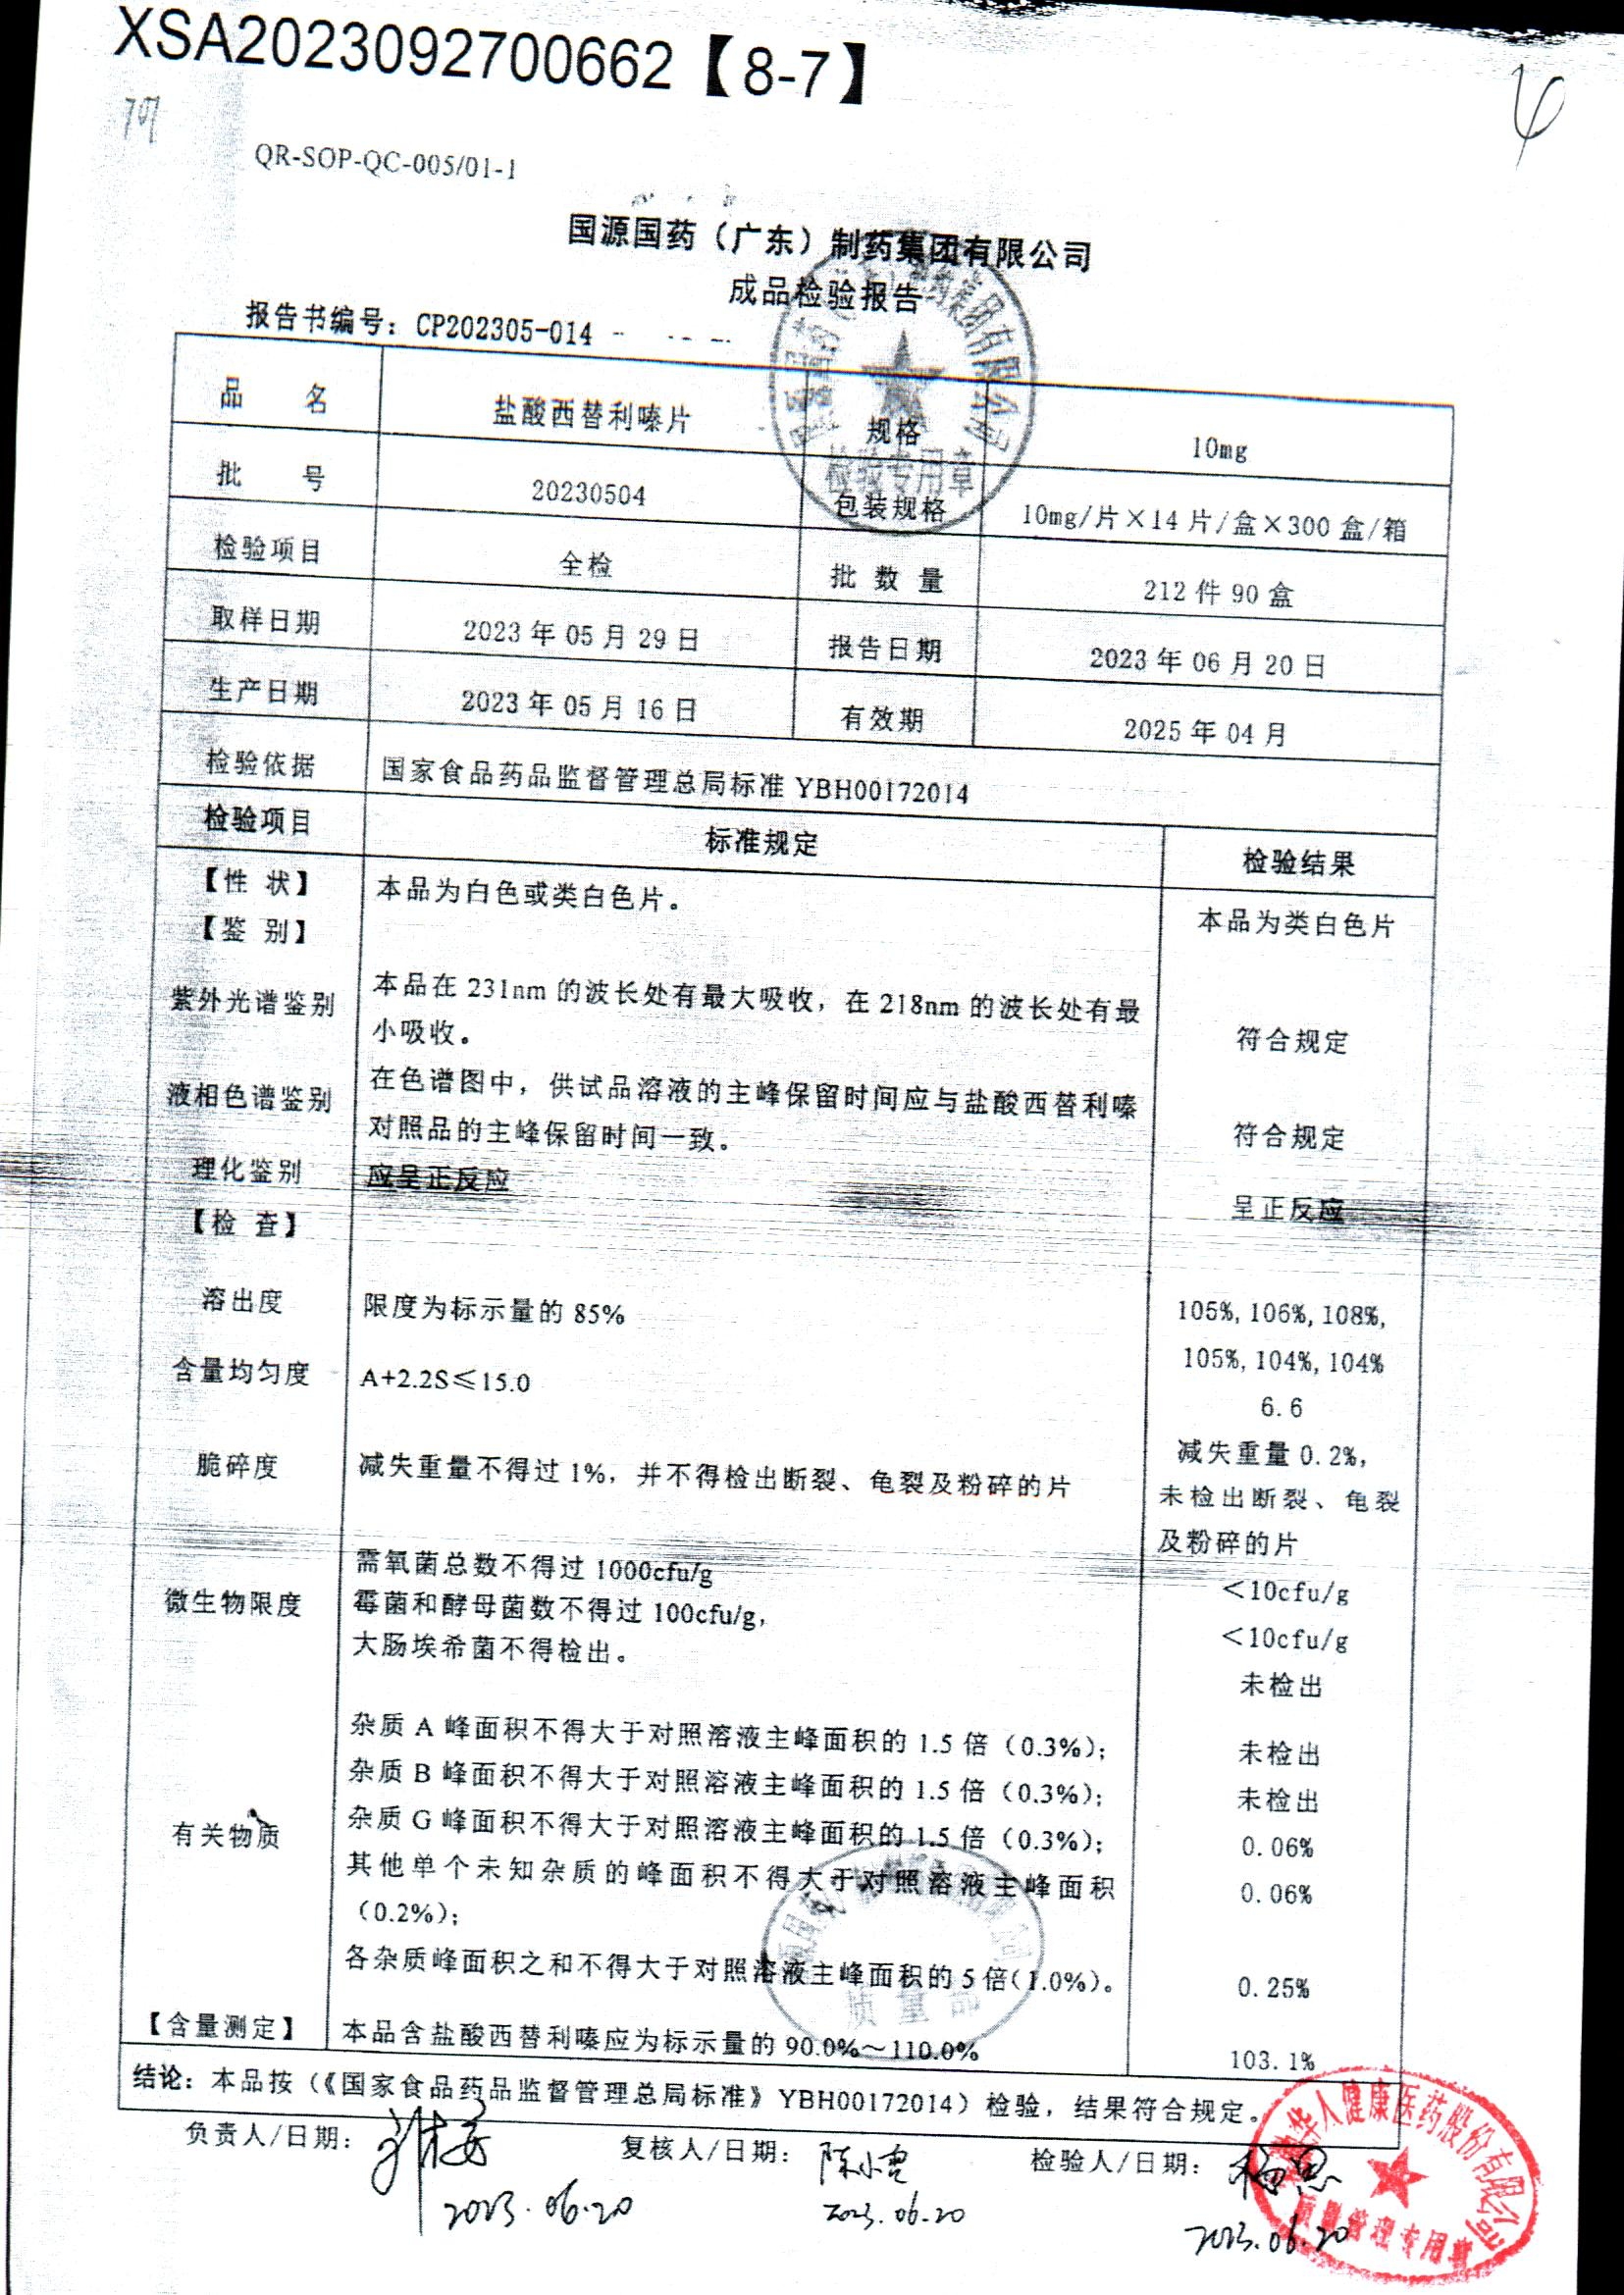 XSA2023092700662【8-7】
QR-SOP-QC-005/01-1
国源国药（广东）制药集团有限公司
成品检验报告
报告书编号：CP202305-014
品 名 盐酸西替利嗪片 规格 10mg
批 号 20230504 包装规格 10mg/片×14片/盒×300盒/箱
检验项目 全检 批 数 量 212件90盒
取样日期 2023年05月29日 报告日期 2023年06月20日
生产日期 2023年05月16日 有效期 2025年04月
检验依据 国家食品药品监督管理总局标准 YBH00172014
检验项目 标准规定 检验结果
【性 状】 本品为白色或类白色片。 本品为类白色片
【鉴 别】
紫外光谱鉴别 本品在 231nm 的波长处有最大吸收，在 218nm 的波长处有最
小吸收。 符合规定
液相色谱鉴别 在色谱图中，供试品溶液的主峰保留时间应与盐酸西替利嗪
对照品的主峰保留时间一致。 符合规定
理化鉴别 应呈正反应 呈正反应
【检 查】
溶出度 限度为标示量的 85% 105%, 106%, 108%,
105%, 104%, 104%
含量均匀度 A+2.2S≤15.0 6.6
脆碎度 减失重量不得过 1%，并不得检出断裂、龟裂及粉碎的片 减失重量 0.2%，
未检出断裂、龟裂
及粉碎的片
微生物限度 需氧菌总数不得过 1000cfu/g <10cfu/g
霉菌和酵母菌数不得过 100cfu/g， <10cfu/g
大肠埃希菌不得检出。 未检出
有关物质 杂质 A 峰面积不得大于对照溶液主峰面积的 1.5 倍（0.3%）； 未检出
杂质 B 峰面积不得大于对照溶液主峰面积的 1.5 倍（0.3%）； 未检出
杂质 G 峰面积不得大于对照溶液主峰面积的 1.5 倍（0.3%）； 0.06%
其他单个未知杂质的峰面积不得大于对照溶液主峰面积 0.06%
（0.2%）；
各杂质峰面积之和不得大于对照溶液主峰面积的 5 倍（1.0%）。 0.25%
【含量测定】 本品含盐酸西替利嗪应为标示量的 90.0%～110.0% 103.1%
结论：本品按（《国家食品药品监督管理总局标准》YBH00172014）检验，结果符合规定。
负责人/日期： 复核人/日期：陈小雪 检验人/日期：
2023.06.20 2023.06.20 2023.06.20
检验专用章
质量部
华人健康医药股份有限公司
质量管理专用章